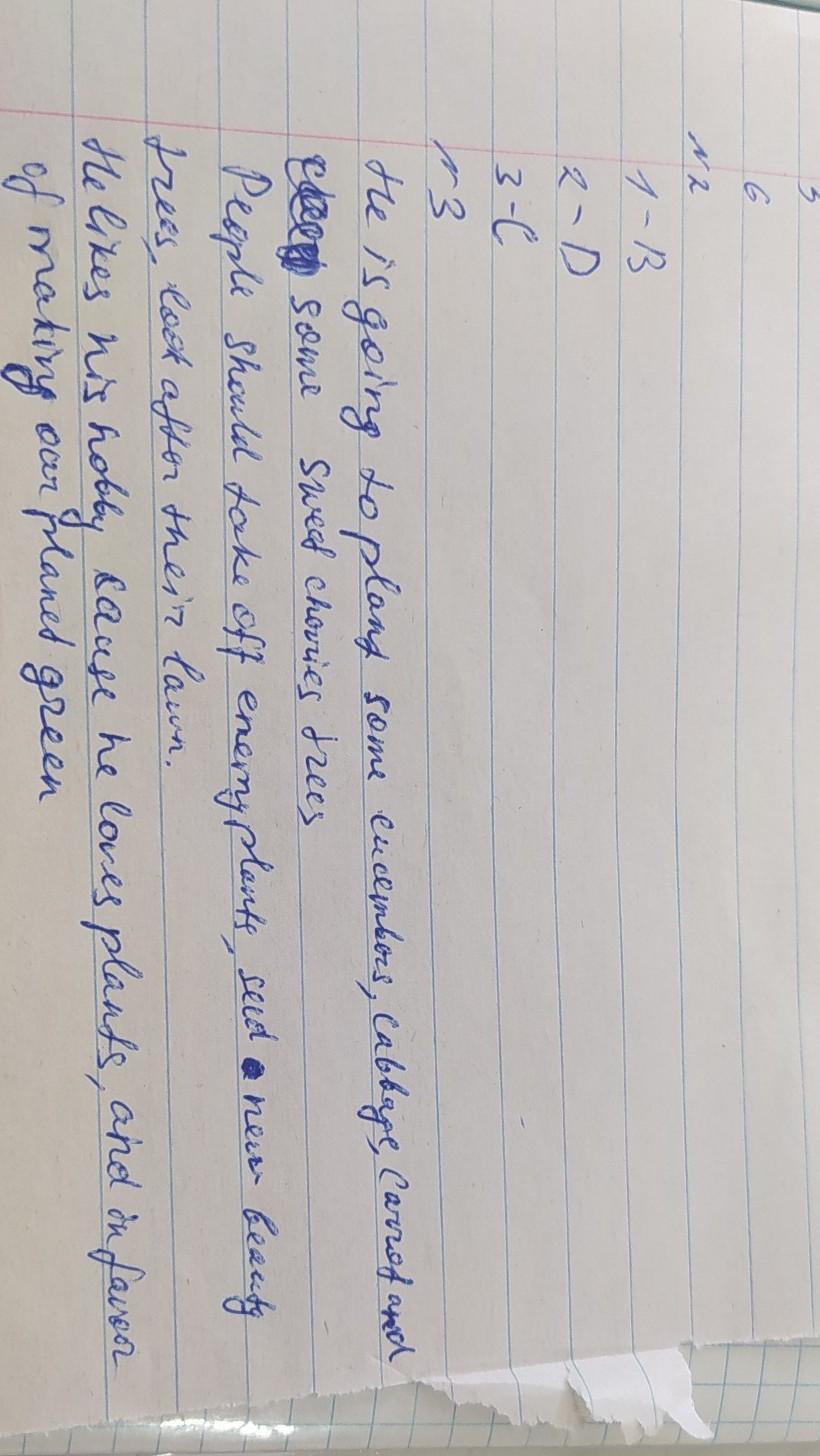 5
6
N2
1-B
2-D
3-C
N3
He is going to plant some cucembors, cabbage, carrot and
some sweet chorries trees
People should take off enemy plants, seed new beauty
trees, look after their lawn.
He likes his hobby cause he loves plants, and in favor
of making our planet green